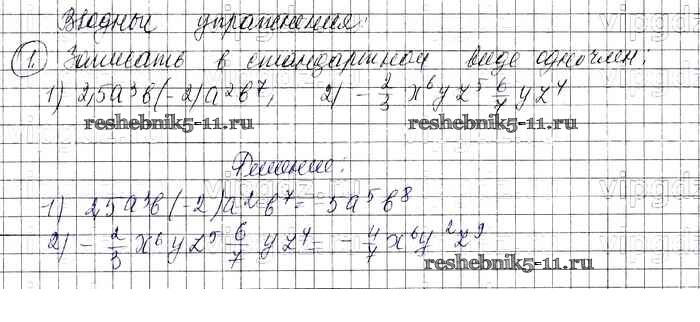 Вводные упражнения:
1. Записать в стандартном виде одночлен:
1) 2,5a³b(-2)a²b⁷, 2) -2/3 x⁶yz⁵ 6/7 yz⁴
reshebnik5-11.ru reshebnik5-11.ru
Решение:
1) 2,5a³b(-2)a²b⁷ = 5a⁵b⁸
2) -2/3 x⁶yz⁵ 6/7 yz⁴ = -4/7 x⁶y²z⁹
reshebnik5-11.ru